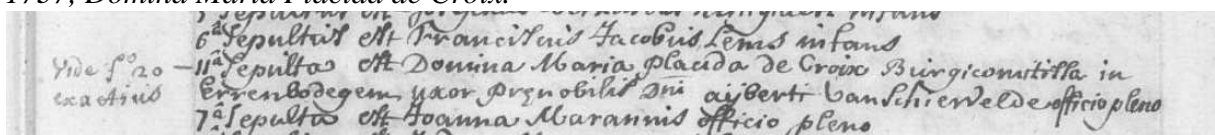 1737, Domina Maria Placida de Croix.
6ª Sepultus est Franciscus Jacobus Lems infans
Vide fº 20 — 11ª Sepulta est Domina Maria placida de Croix Burgicomitissa in
exactius Errenbodegem uxor prænobilis Dni ayberti van Schiervelde officio pleno
7ª Sepulta est Joanna Marannis officio pleno